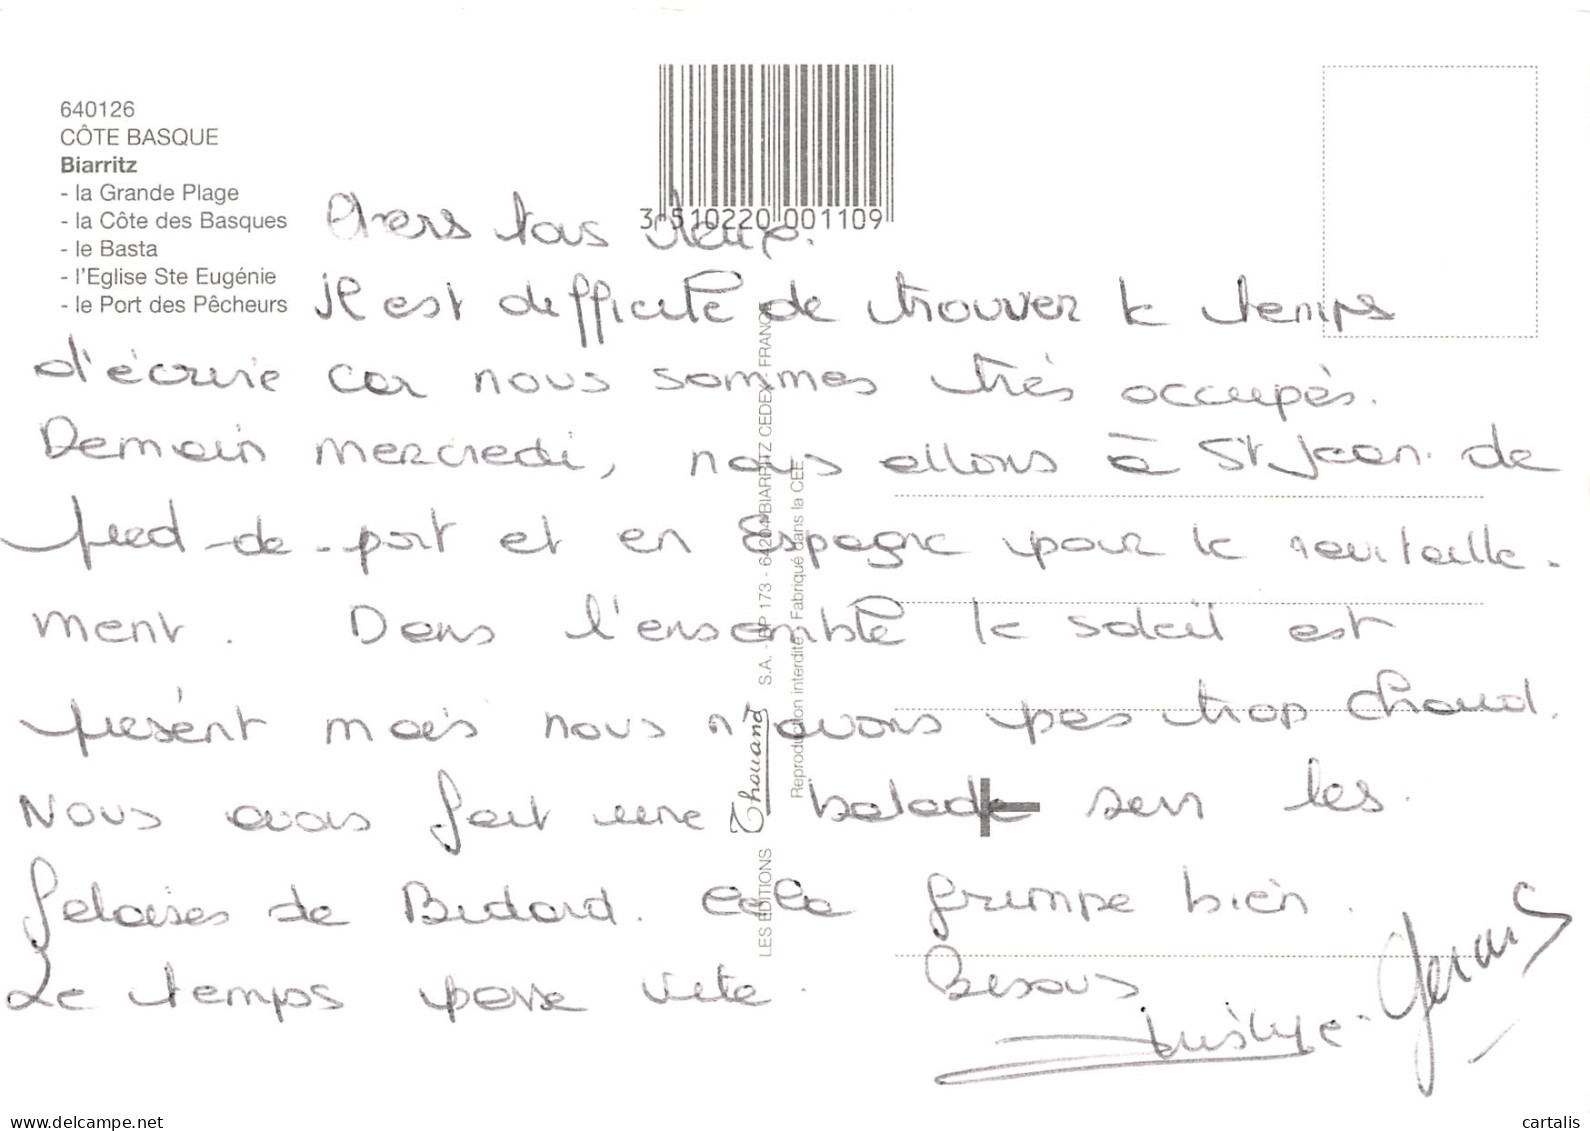 640126
CÔTE BASQUE
Biarritz
- la Grande Plage
- la Côte des Basques
- le Basta
- l'Eglise Ste Eugénie
- le Port des Pêcheurs
3 510220 001109
Chers tous deux.
Il est difficile de trouver le temps
d'écrire car nous sommes très occupés.
Demain mercredi, nous allons à St Jean de
pied-de-port et en Espagne pour le ravitaille-
ment. Dans l'ensemble le soleil est
présent mais nous n'avons pas trop chaud.
Nous avons fait une balade sur les
falaises de Bidard. Cela grimpe bien.
Le temps passe vite. Bisous
LES EDITIONS Thouand S.A. - BP 173 - 64204 BIARRITZ CEDEX - FRANCE
Reproduction interdite. Fabriqué dans la CEE
www.delcampe.net
cartalis